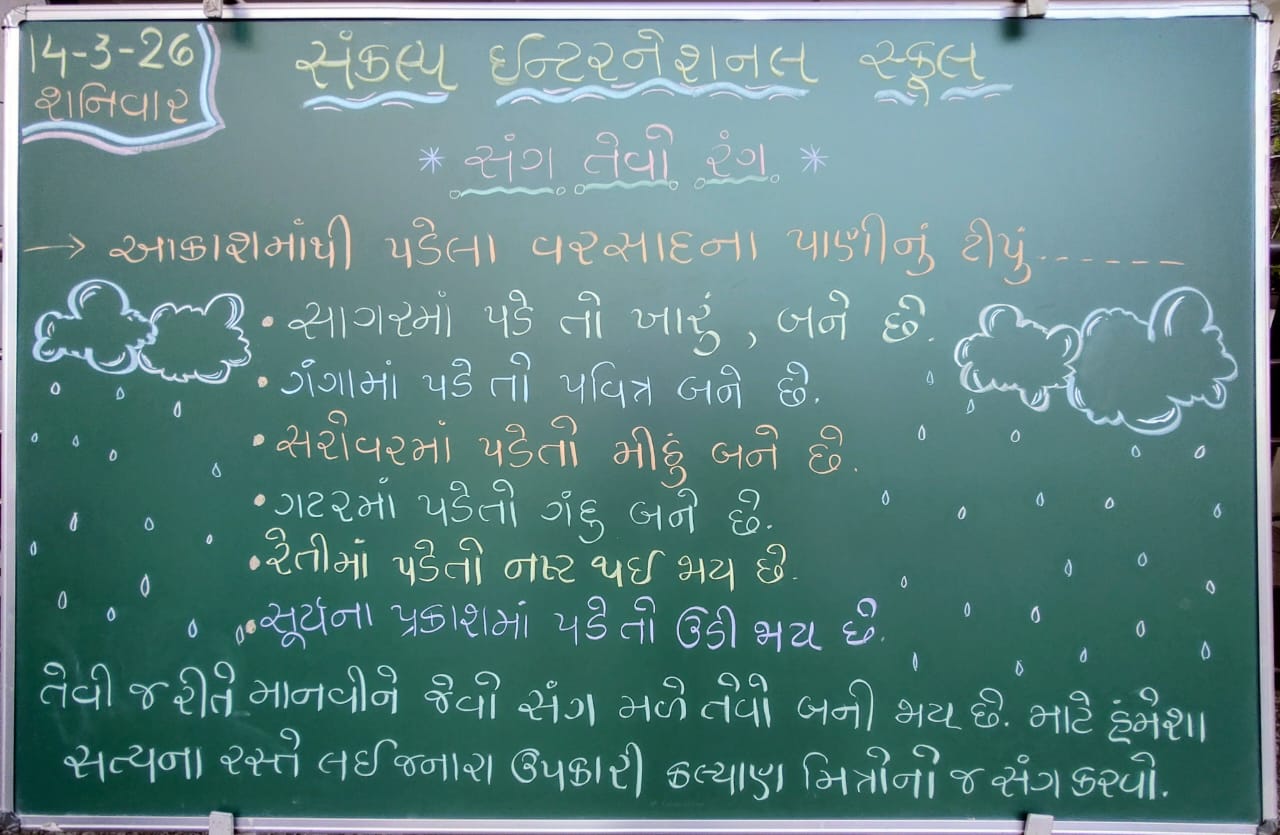 14-3-26
શનિવાર
સંકલ્પ ઈન્ટરનેશનલ સ્કૂલ
* સંગ તેવો રંગ *
→ આકાશમાંથી પડેલા વરસાદના પાણીનું ટીપું.......
• સાગરમાં પડે તો ખારું, બને છે.
• ગંગામાં પડે તો પવિત્ર બને છે.
• સરોવરમાં પડેતો મીઠું બને છે.
• ગટરમાં પડેતો ગંદુ બને છે.
• રેતીમાં પડેતો નષ્ટ થઈ જાય છે.
• સૂર્યના પ્રકાશમાં પડે તો ઉડી જાય છે.
તેવી જ રીતે માનવીને જેવો સંગ મળે તેવો બની જાય છે. માટે હંમેશા
સત્યના રસ્તે લઈ જનારા ઉપકારી કલ્યાણ મિત્રોનો જ સંગ કરવો.